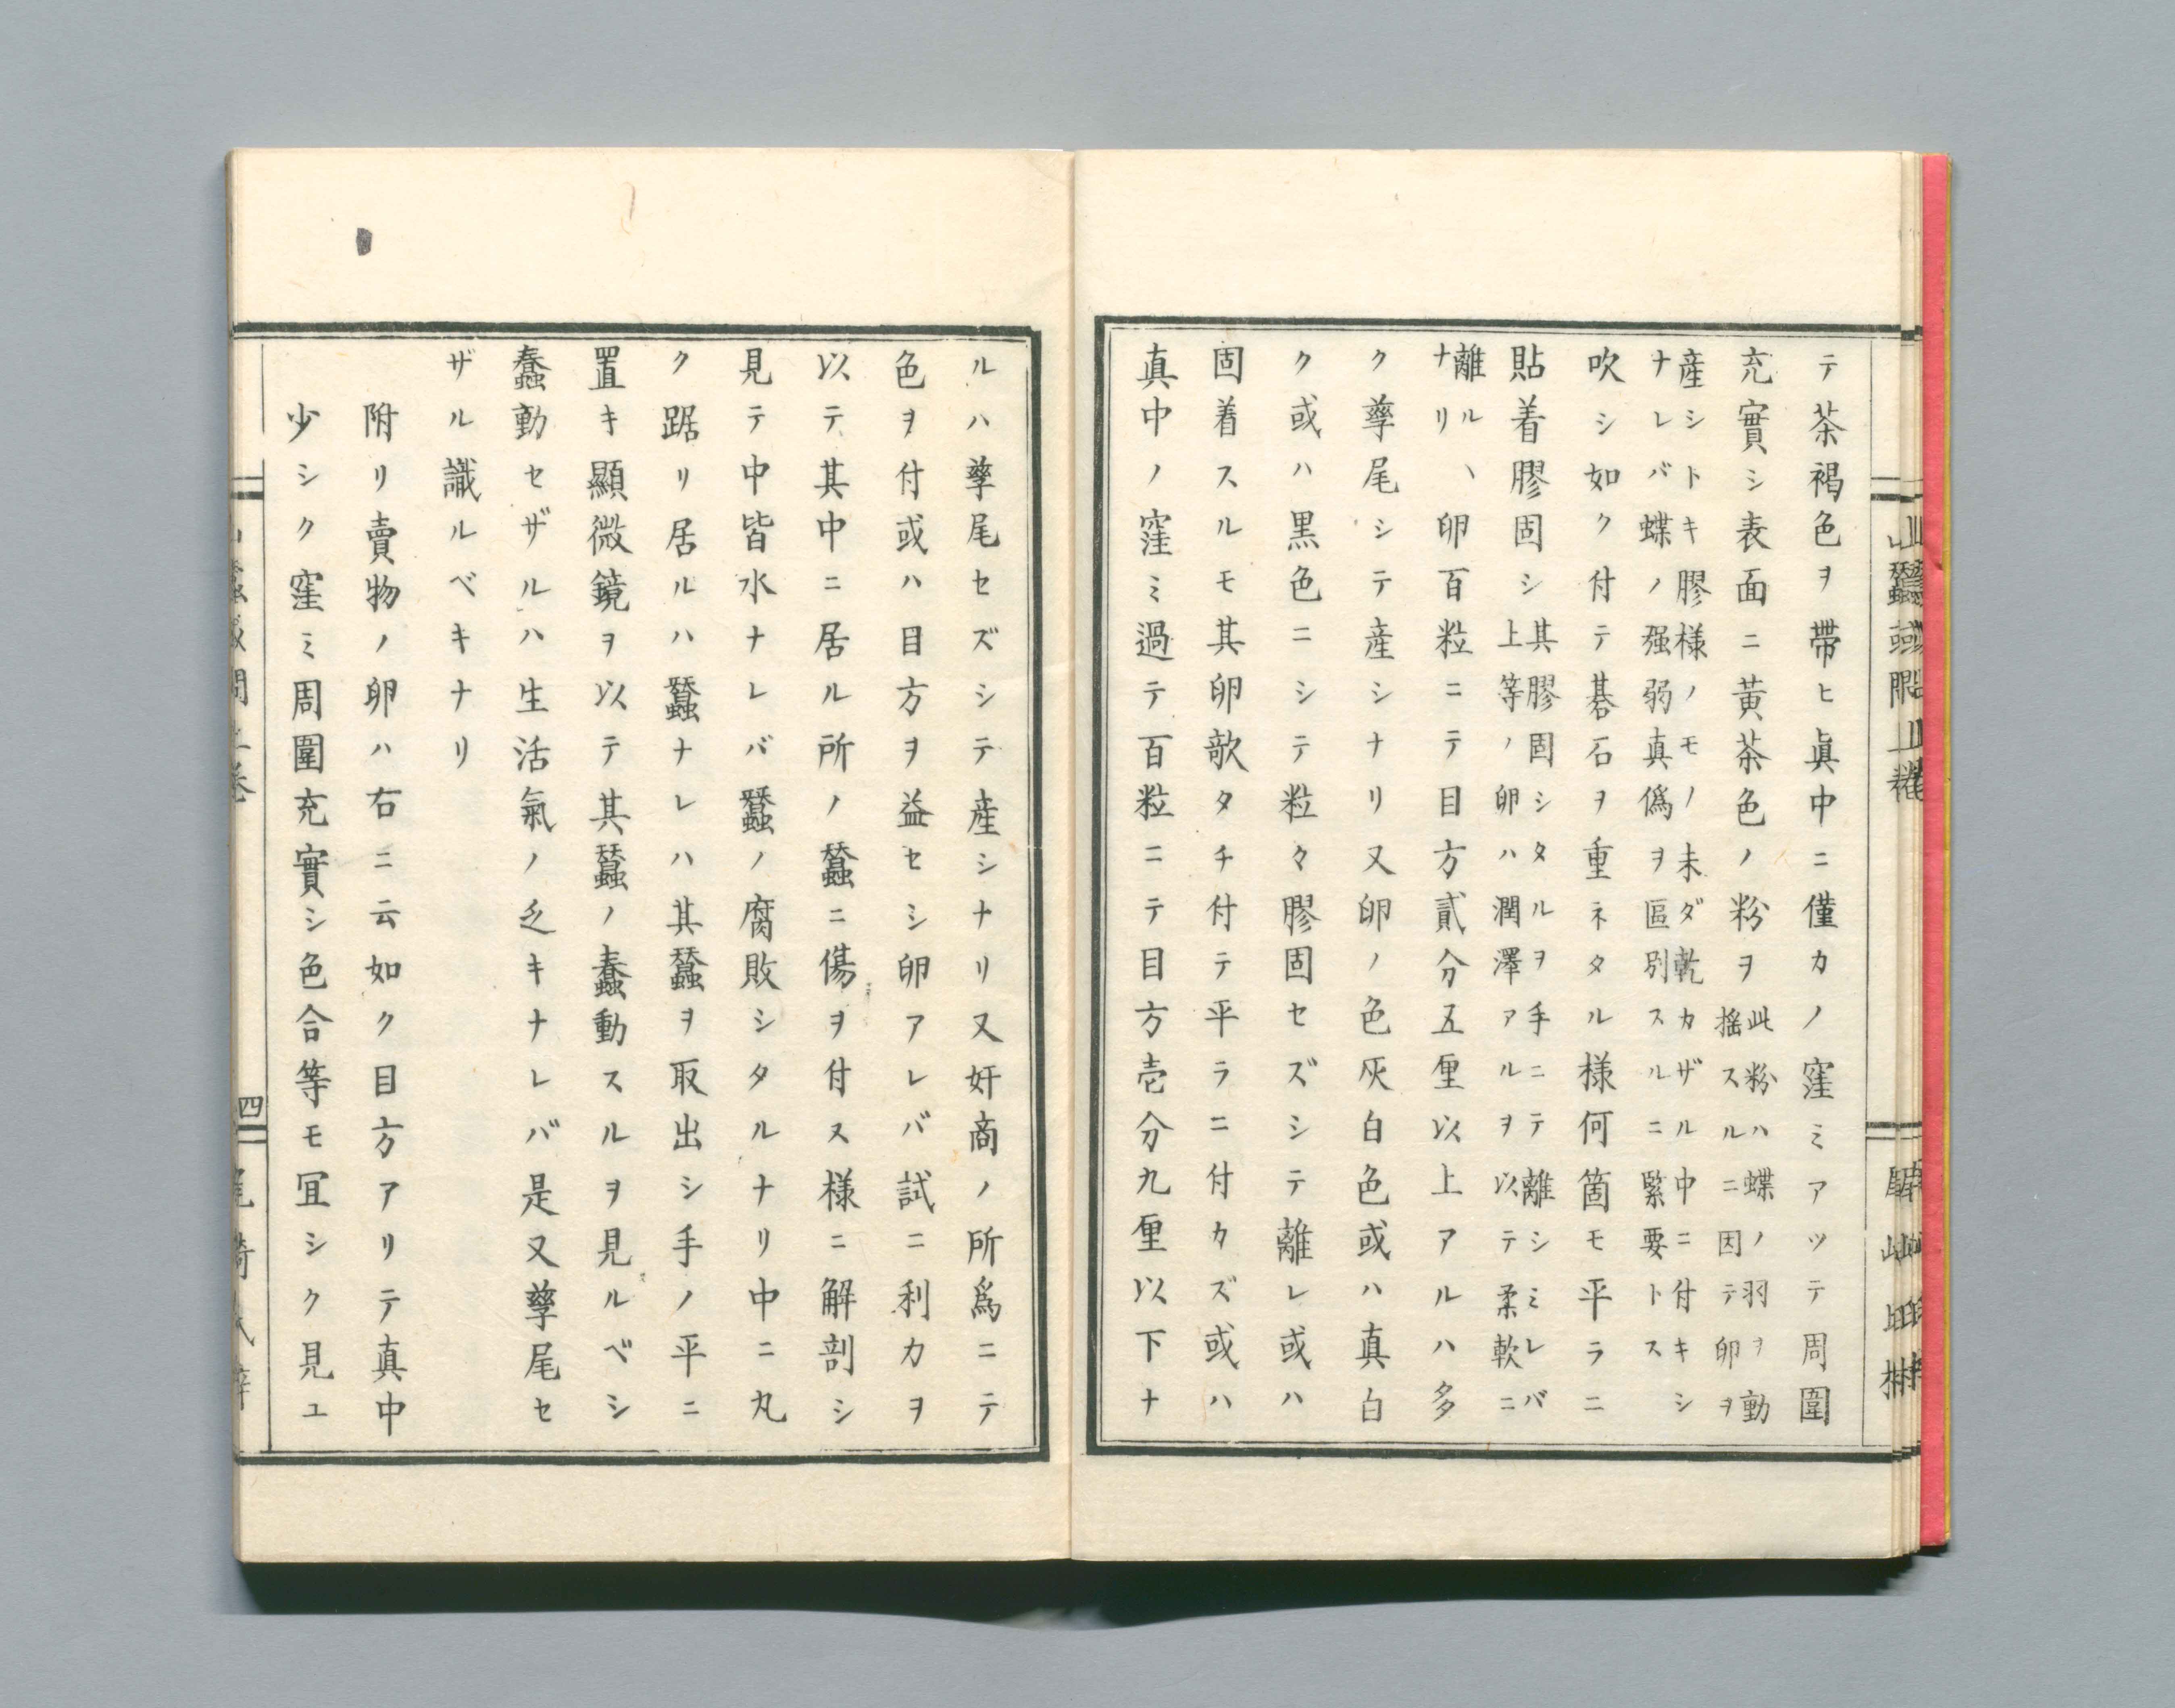 テ茶褐色ヲ帶ヒ眞中ニ僅カノ窪ミアツテ周圍
充實シ表面ニ黃茶色ノ粉ヲ
此粉ハ蝶ノ羽ヲ動
搖スルニ因テ卵ヲ
産シトキ膠様ノモノ未ダ乾カザル中ニ付キシ
ナレバ蝶ノ强弱真僞ヲ區別スルニ緊要トス
吹シ如ク付テ碁石ヲ重ネタル様何箇モ平ラニ
貼着膠固シ
其膠固シタルヲ手ニテ離シミレバ
上等ノ卵ハ潤澤アルヲ以テ柔軟ニ
離ル丶
ナリ
卵百粒ニテ目方貳分五厘以上アルハ多
ク孳尾シテ産シナリ又卵ノ色灰白色或ハ真白
ク或ハ黒色ニシテ粒々膠固セズシテ離レ或ハ
固着スルモ其卵欹タチ付テ平ラニ付カズ或ハ
真中ノ窪ミ過テ百粒ニテ目方壱分九厘以下ナ
ルハ孳尾セズシテ産シナリ又奸商ノ所爲ニテ
色ヲ付或ハ目方ヲ益セシ卵アレバ試ニ利カヲ
以テ其中ニ居ル所ノ蠶ニ傷ヲ付ヌ様ニ解剖シ
見テ中皆水ナレバ蠶ノ腐敗シタルナリ中ニ丸
ク踞リ居ルハ蠶ナレハ其蠶ヲ取出シ手ノ平ニ
置キ顯微鏡ヲ以テ其蠶ノ蠢動スルヲ見ルベシ
蠢動セザルハ生活氣ノ乏キナレバ是又孳尾セ
ザル識ルベキナリ
附リ賣物ノ卵ハ右ニ云如ク目方アリテ真中
少シク窪ミ周圍充實シ色合等モ冝シク見ユ
四